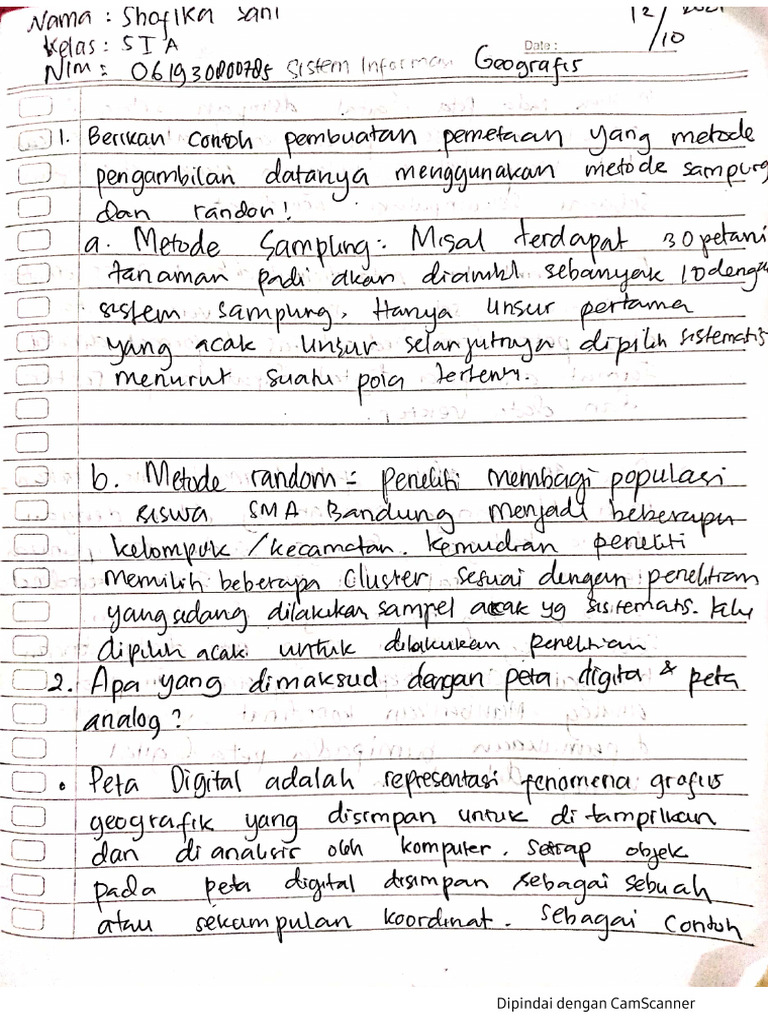 Nama : Shofika Sani
12/10
Kelas : 5 I A
Date :
Nim : 061930800785 Sistem Informasi Geografis
1. Berikan contoh pembuatan pemetaan yang metode
pengambilan datanya menggunakan metode sampling
dan random!
a. Metode Sampling : Misal terdapat 30 petani
tanaman padi akan diambil sebanyak 10 dengan
sistem sampling. Hanya unsur pertama
yang acak unsur selanjutnya dipilih sistematis
menurut suatu pola tertentu.
b. Metode random = peneliti membagi populasi
siswa SMA Bandung menjadi beberapa
kelompok /kecamatan. Kemudian peneliti
memilih beberapa Cluster sesuai dengan penelitian
yang sedang dilakukan sampel acak yg sistematis. lalu
dipilih acak untuk dilakukan penelitian
2. Apa yang dimaksud dengan peta digital & peta
analog?
• Peta Digital adalah representasi fenomena grafis
geografik yang disimpan untuk ditampilkan
dan di analisis oleh komputer. Setiap objek
pada peta digital disimpan sebagai sebuah
atau sekumpulan koordinat. Sebagai contoh
Dipindai dengan CamScanner